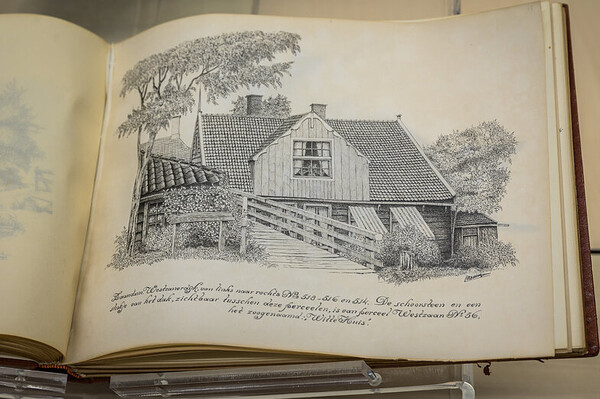 Zaandam, Westzanerdijk, van links naar rechts Nos 518-516 en 514. De schoorsteen en een
stukje van het dak, zichtbaar tusschen deze perceelen, is van perceel Westzaan No 56,
het zoogenaamd "Witte Huis".